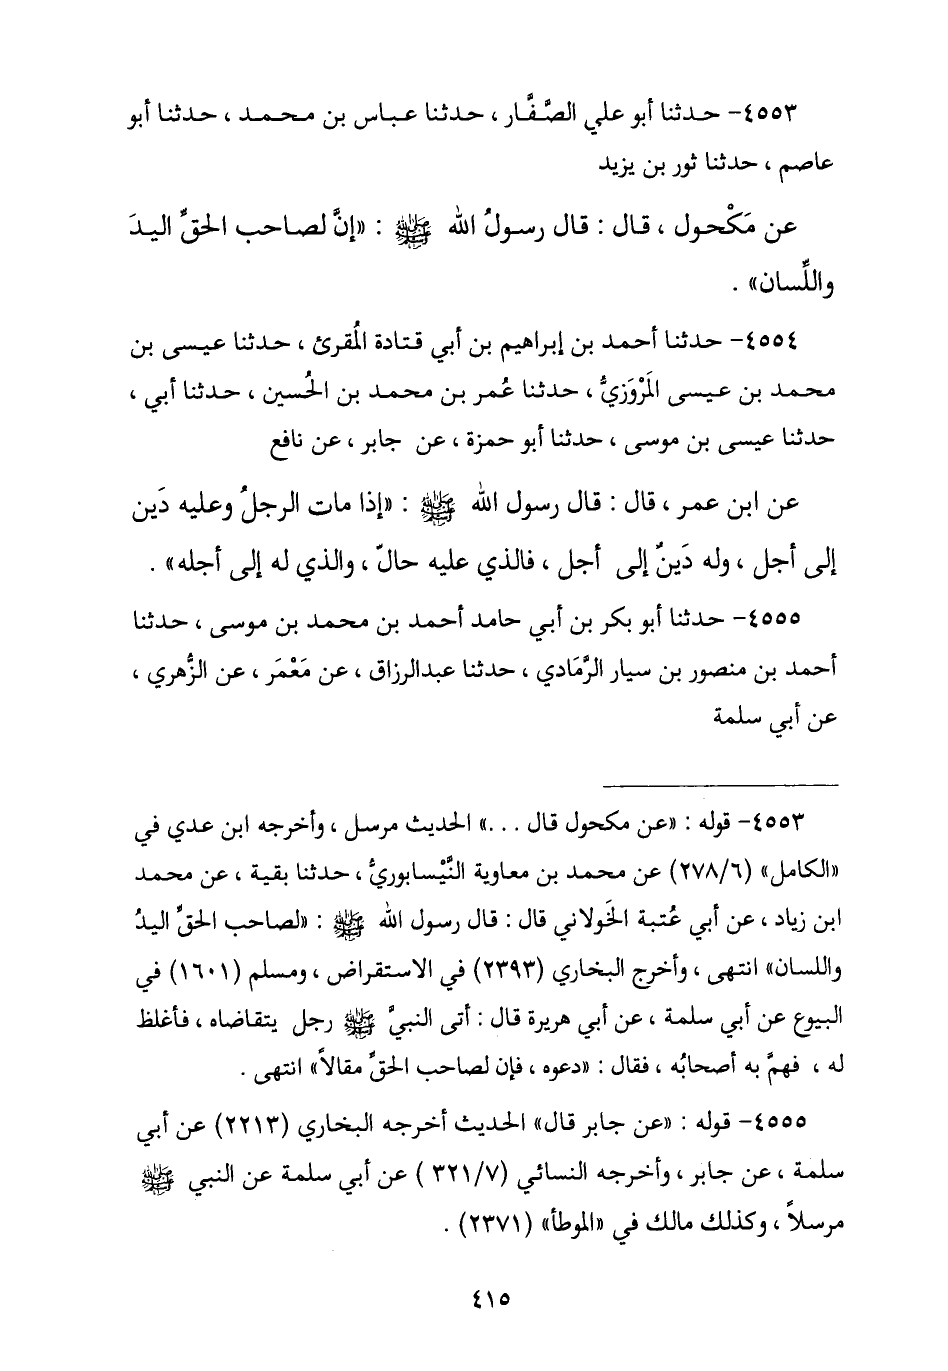 ٤٥٥٣- حدثنا أبو علي الصَّفَّار ، حدثنا عباس بن محمد ، حدثنا أبو
عاصم ، حدثنا ثور بن يزيد
عن مَكْحول ، قال : قال رسولُ الله ﷺ : «إنَّ لصاحب الحقِّ اليدَ
واللِّسان» .
٤٥٥٤- حدثنا أحمد بن إبراهيم بن أبي قتادة المُقرئ ، حدثنا عيسى بن
محمد بن عيسى المَرْوَزيُّ ، حدثنا عُمر بن محمد بن الحُسين ، حدثنا أبي ،
حدثنا عيسى بن موسى ، حدثنا أبو حمزة ، عن جابر ، عن نافع
عن ابن عمر ، قال : قال رسول الله ﷺ : «إذا مات الرجلُ وعليه دَين
إلى أجل ، وله دَينٌ إلى أجل ، فالذي عليه حالّ ، والذي له إلى أجله» .
٤٥٥٥- حدثنا أبو بكر بن أبي حامد أحمد بن محمد بن موسى ، حدثنا
أحمد بن منصور بن سيار الرَّمَادي ، حدثنا عبدالرزاق ، عن مَعْمَر ، عن الزُّهري ،
عن أبي سلمة
٤٥٥٣- قوله : «عن مكحول قال ...» الحديث مرسل ، وأخرجه ابن عدي في
«الكامل» (٢٧٨/٦) عن محمد بن معاوية النَّيْسابوريُّ ، حدثنا بقية ، عن محمد
ابن زياد ، عن أبي عُتبة الخَولاني قال : قال رسول الله ﷺ : «لصاحب الحقِّ اليدُ
واللسان» انتهى ، وأخرج البخاري (٢٣٩٣) في الاستقراض ، ومسلم (١٦٠١) في
البيوع عن أبي سلمة ، عن أبي هريرة قال : أتى النبيَّ ﷺ رجل يتقاضاه ، فأغلظ
له ، فهمَّ به أصحابُه ، فقال : «دعوه ، فإن لصاحب الحقِّ مقالاً» انتهى .
٤٥٥٥- قوله : «عن جابر قال» الحديث أخرجه البخاري (٢٢١٣) عن أبي
سلمة ، عن جابر ، وأخرجه النسائي (٣٢١/٧ ) عن أبي سلمة عن النبي ﷺ
مرسلاً ، وكذلك مالك في «الموطأ» (٢٣٧١) .
٤١٥